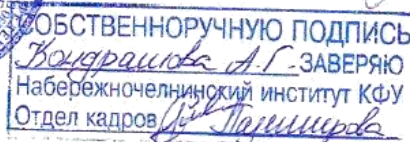 СОБСТВЕННОРУЧНУЮ ПОДПИСЬ
Кондрашова А.Г. ЗАВЕРЯЮ
Набережночелнинский институт КФУ
Отдел кадров